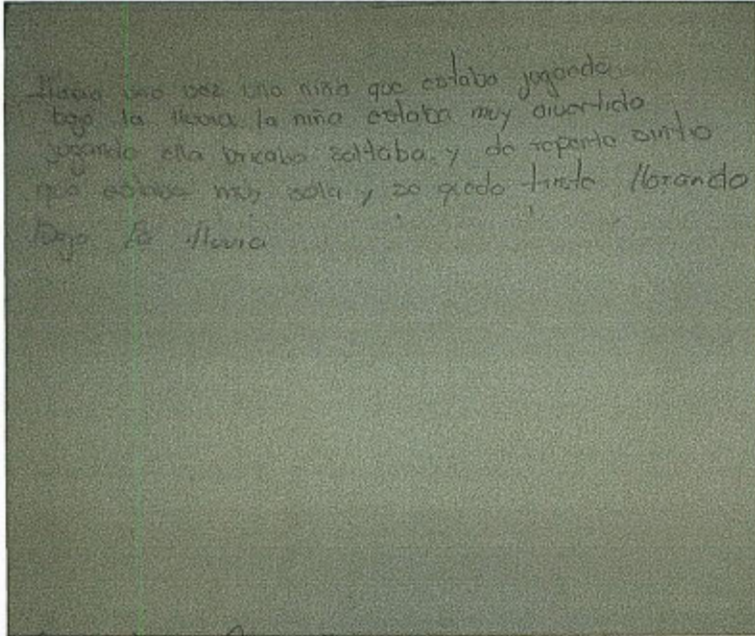 Habia una vez una niña que estaba jugando
bajo la lluvia la niña estaba muy divertida
jugando ella bricaba saltaba y de reperto sintio
que estaba muy sola y se quedo triste llorando
Bajo la lluvia